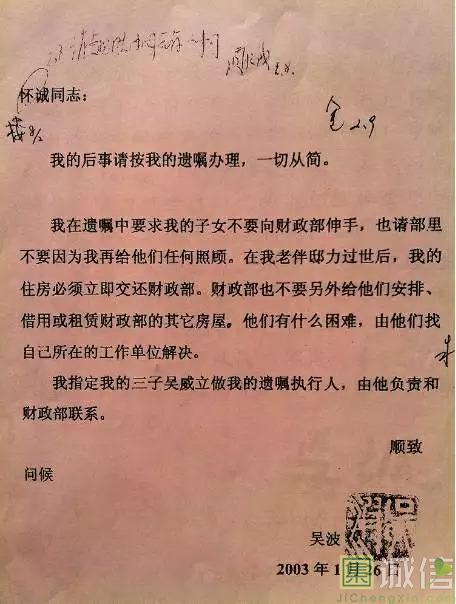 怀诚同志：
金 2.9
我的后事请按我的遗嘱办理，一切从简。
我在遗嘱中要求我的子女不要向财政部伸手，也请部里
不要因为我再给他们任何照顾。在我老伴邸力过世后，我的
住房必须立即交还财政部。财政部也不要另外给他们安排、
借用或租赁财政部的其它房屋。他们有什么困难，由他们找
自己所在的工作单位解决。
我指定我的三子吴威立做我的遗嘱执行人，由他负责和
财政部联系。
顺致
问候
吴波
2003 年 1 月 26 日
集诚信
JiChengXin.com